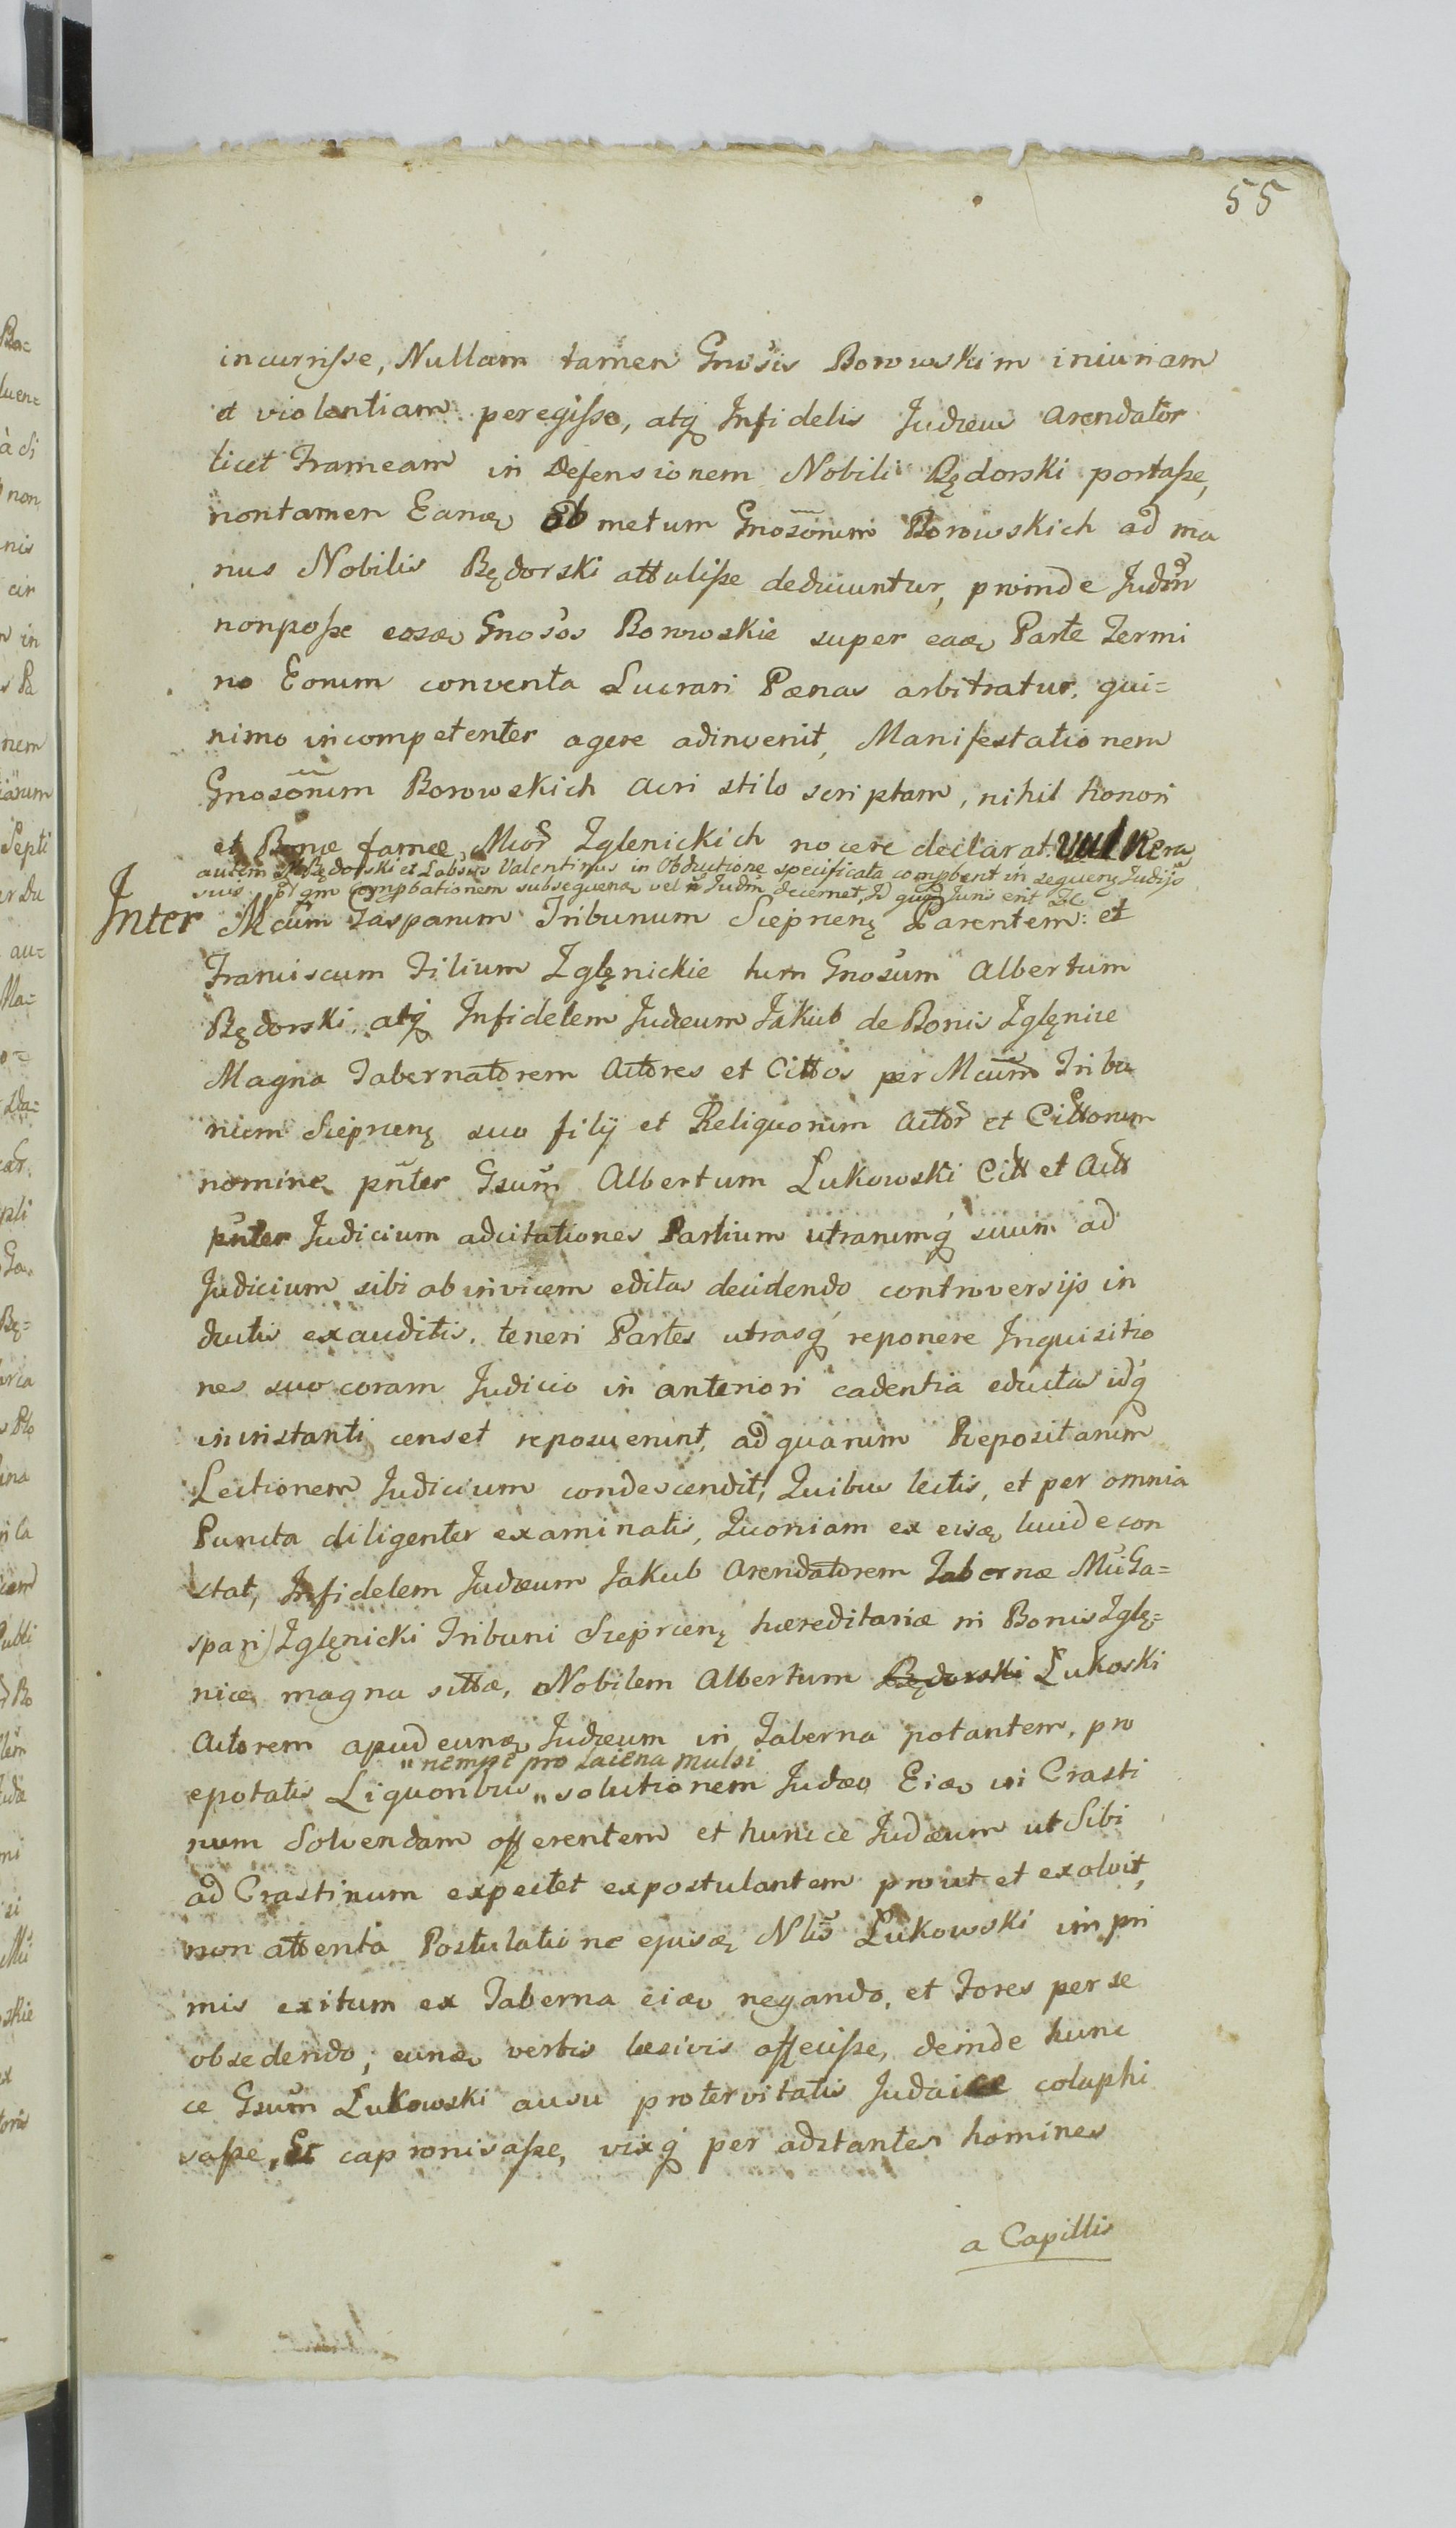 55
incurrisse, Nullam tamen Gnosis Borowskim iniuriam
et violentiam peregisse, atq Infidelis Judæus arendator
licet Frameam in Defensionem Nobili Będorski portasse,
nontamen Eandę ob metum Gnosorum Borowskich ad ma
nus Nobilis Będorski attulisse deducuntur, proinde Judm
nonposse eosdę Gnosos Borowskie super eadę Parte Termi
no Eorum conventa Lucrari Pœnas arbitratur, qui=
nimo incompetenter agere adinvenit, Manifestationem
Gnosorum Borowskich acri stilo scriptam, nihil honori
et Bonæ famæ Mcor Zglenickich nocere declarat. Vulnera
autem N Będorski et Labsus Valentinus in Obductione specificata compbent in sequenę Judijs
suis, pt qm Compbationem subsequendę vel Judm decernet, Id quod Juris erit
Inter Mcum Casparum Tribunum Sieprcenę Parentem et
Franciscum Filium Zglęnickie tum Gnosum Albertum
Będorski atq Infidelem Judæum Jakub de Bonis Zglęnice
Magna Tabernatorem Actores et Cittos per Mcum Tribu
num Sieprcenę suo filij et Reliquorum Actor et Cittorum
nomine pnter Gsum Albertum Łukowski Citt et Actt
pnter Judicium adcitationes Partium utrarumq suum ad
Judicium sibi ab invicem editas decidendo controversijs in
ductis exauditis, teneri Partes utrasq reponere Inquisitio
nes suo coram Judicio in anteriori cadentia eductas idq
ininstanti censet reposuerint, ad quarum Repositarum
Lectionem Judicium condescendit, Quibus lectis, et per omnia
Puncta diligenter examinatis, Quoniam ex eisdę lucide con
stat, Infidelem Judæum Jakub Arendatorem Tabernæ Mci Ga=
spari Zglęnicki Tribuni Sieprcenę hæreditariæ in Bonis Zglę=
nice magna sittæ, Nobilem Albertum Będorski Łukoski
Actorem apud eundę Judæum in Taberna potantem, pro
"nempe pro Laicna mulsi
epotatis Liquoribus "solutionem Judæo Eidę in Crasti
num Solvendam offerentem et huncce Judæum ut Sibi
ad Crastinum expectet expostulantem prout et exolvit,
non attenta Postulatione ejusdę Nlis Łukowski inpri
mis exitum ex Taberna eidę negando, et Fores per se
obsedendo, eundę verbis læsivis affecisse, deinde hunc
ce Gsum Łukowski ausu protervitatis Judaicæ colaphi
sasse, Et capronisasse, vixq per adstantes homines
a Capillis